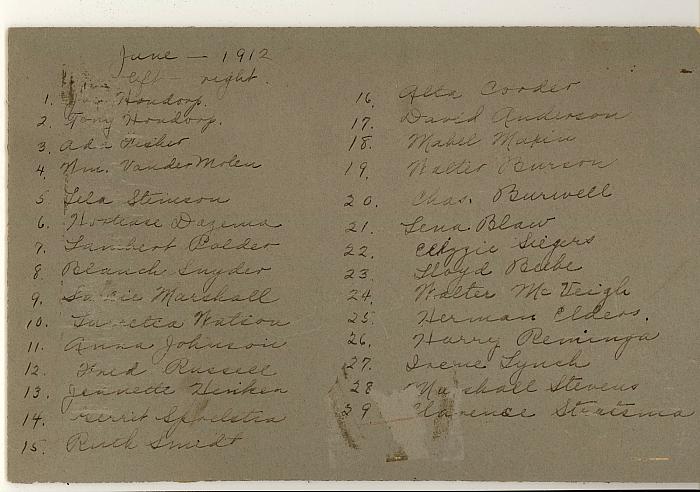 June - 1912
left - right.
1. Hondorp.
2. Tony Hondorp.
3. Ada Fisher
4. Wm. VanderMolen
5. Lela Stimson
6. Hortease Dazema
7. Lambert Polder
8. Blanch Snyder
9. Marshall
10. Lucretia Watson
11. Anna Johnson
12. Fred Russell
13. Jeanette Henken
14. Gerrit Spoelstra
15. Ruth Smidt
16. Alta Corder
17. David Anderson
18. Mabel
19. Walter Burson
20. Chas. Burwell
21. Lena Blaw
22. Siegers
23. Lloyd Beebe
24. Walter McVeigh
25. Herman Elders.
26. Harry Reminga
27. Irene Lynch
28 Marshall Stevens
29 Clarence Stratsma